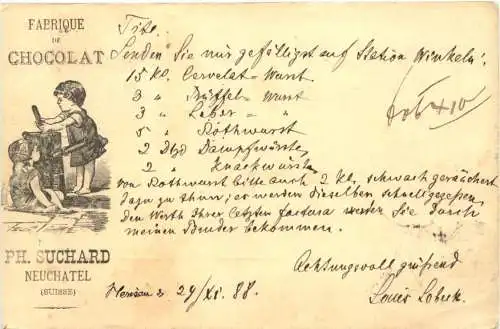 FABRIQUE
DE
CHOCOLAT
PH. SUCHARD
NEUCHATEL
(SUISSE)
Tit.
Senden Sie mir gefälligst auf Station Winkeln:
15 Ko. Cervelat-Wurst
3 " Trüffel-Wurst
3 " Leber- " "
5 " Rothwurst
2 Dtzd Dampfwürste
2 " Knackwürste
von Rothwurst bitte auch 2 Ko. schwach geräuchert
dazu zu thun, es werden dieselben schnell gegessen
den Werth Ihrer letzten factura werden Sie durch
meinen Bruder bekommen.
Achtungsvoll grüssend
Louis Lobeck.
Herisau 29/XI. 88.